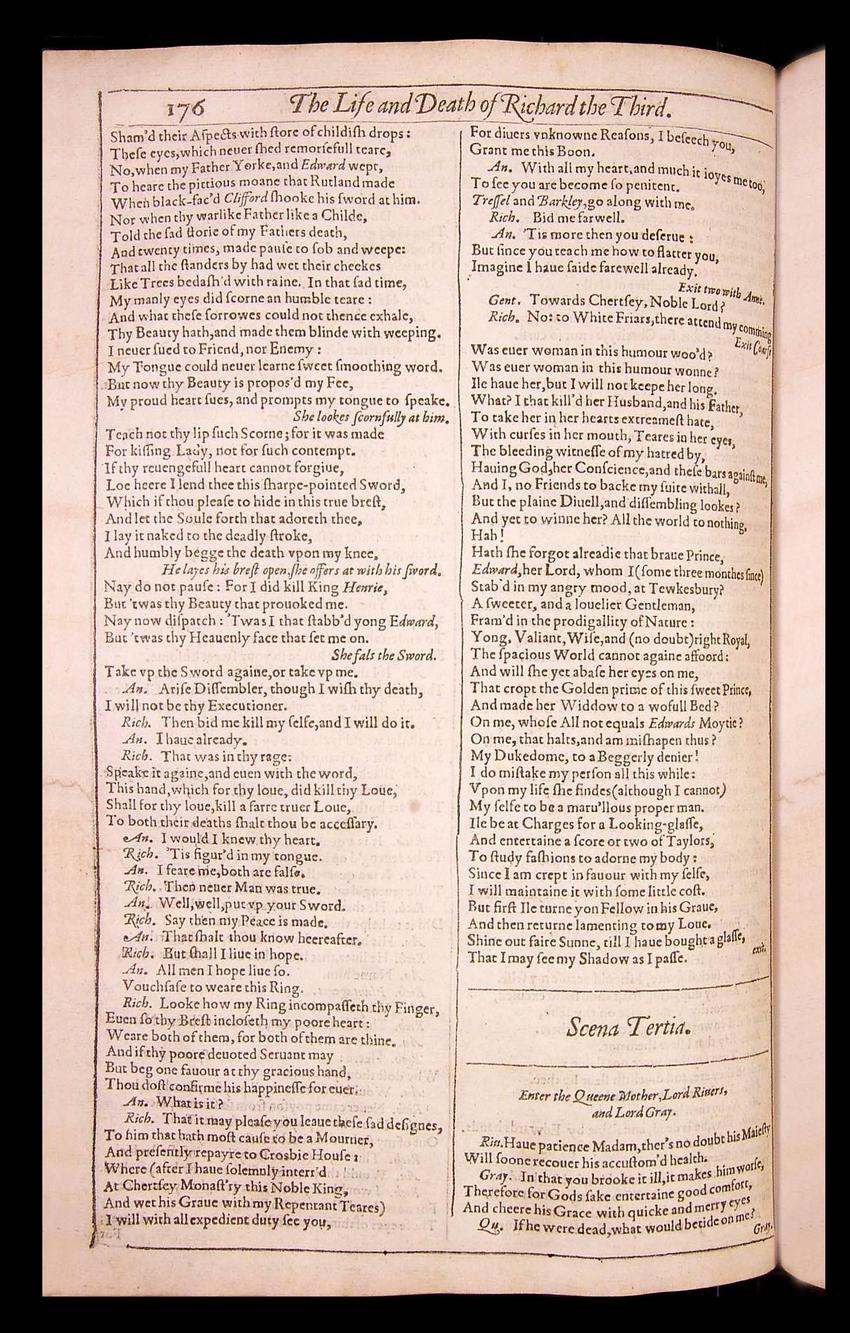 176
The Life and Death of Richard the Third.
Sham'd their Aſpects with ſtore of childiſh drops:
Theſe eyes, which neuer ſhed remorſefull teare,
No, when my Father Yorke, and Edward wept,
To heare the pittious moane that Rutland made
When black-fac'd Clifford ſhooke his ſword at him.
Nor when thy warlike Father like a Childe,
Told the ſad ſtorie of my Fathers death,
And twenty times, made pauſe to ſob and weepe:
That all the ſtanders by had wet their cheekes
Like Trees bedaſh'd with raine. In that ſad time,
My manly eyes did ſcorne an humble teare:
And what theſe ſorrowes could not thence exhale,
Thy Beauty hath, and made them blinde with weeping.
I neuer ſued to Friend, nor Enemy:
My Tongue could neuer learne ſweet ſmoothing word.
But now thy Beauty is propos'd my Fee,
My proud heart ſues, and prompts my tongue to ſpeake.
She lookes ſcornfully at him.
Teach not thy lip ſuch Scorne; for it was made
For kiſſing Lady, not for ſuch contempt.
If thy reuengefull heart cannot forgiue,
Loe heere I lend thee this ſharpe-pointed Sword,
Which if thou pleaſe to hide in this true breſt,
And let the Soule forth that adoreth thee,
I lay it naked to the deadly ſtroke,
And humbly begge the death vpon my knee,
He layes his breſt open, ſhe offers at with his ſword.
Nay do not pauſe: For I did kill King Henrie,
But 'twas thy Beauty that prouoked me.
Nay now diſpatch: 'Twas I that ſtabb'd yong Edward,
But 'twas thy Heauenly face that ſet me on.
She fals the Sword.
Take vp the Sword againe, or take vp me.
An. Ariſe Diſſembler, though I wiſh thy death,
I will not be thy Executioner.
Rich. Then bid me kill my ſelfe, and I will do it.
An. I haue already.
Rich. That was in thy rage:
Speake it againe, and euen with the word,
This hand, which for thy loue, did kill thy Loue,
Shall for thy loue, kill a farre truer Loue,
To both their deaths ſhalt thou be acceſſary.
An. I would I knew thy heart.
Rich. 'Tis figur'd in my tongue.
An. I feare me, both are falſe.
Rich. Then neuer Man was true.
An. Well, well, put vp your Sword.
Rich. Say then my Peace is made.
An. That ſhalt thou know heereafter.
Rich. But ſhall I liue in hope.
An. All men I hope liue ſo.
Vouchſafe to weare this Ring.
Rich. Looke how my Ring incompaſſeth thy Finger,
Euen ſo thy Breſt incloſeth my poore heart:
Weare both of them, for both of them are thine.
And if thy poore deuoted Seruant may
But beg one fauour at thy gracious hand,
Thou doſt confirme his happineſſe for euer.
An. What is it?
Rich. That it may pleaſe you leaue theſe ſad deſignes,
To him that hath moſt cauſe to be a Mourner,
And preſently repayre to Crosbie Houſe:
Where (after I haue ſolemnly interr'd
At Chertſey Monaſt'ry this Noble King,
And wet his Graue with my Repentant Teares)
I will with all expedient duty ſee you,
For diuers vnknowne Reaſons, I beſeech you,
Grant me this Boon.
An. With all my heart, and much it ioyes me too,
To ſee you are become ſo penitent.
Treſſel and Barkley, go along with me.
Rich. Bid me farwell.
An. 'Tis more then you deſerue:
But ſince you teach me how to flatter you,
Imagine I haue ſaide farewell already.
Exit two with Anne.
Gent. Towards Chertſey, Noble Lord?
Rich. No: to White Friars, there attend my comming
Exit Coarſe
Was euer woman in this humour woo'd?
Was euer woman in this humour wonne?
Ile haue her, but I will not keepe her long.
What? I that kill'd her Husband, and his Father,
To take her in her hearts extreameſt hate,
With curſes in her mouth, Teares in her eyes,
The bleeding witneſſe of my hatred by,
Hauing God, her Conſcience, and theſe bars againſt me,
And I, no Friends to backe my ſuite withall,
But the plaine Diuell, and diſſembling lookes?
And yet to winne her? All the world to nothing.
Hah!
Hath ſhe forgot alreadie that braue Prince,
Edward, her Lord, whom I (ſome three monthes ſince)
Stab'd in my angry mood, at Tewkesbury?
A ſweeter, and a louelier Gentleman,
Fram'd in the prodigallity of Nature:
Yong, Valiant, Wiſe, and (no doubt) right Royal,
The ſpacious World cannot againe affoord:
And will ſhe yet abaſe her eyes on me,
That cropt the Golden prime of this ſweet Prince,
And made her Widdow to a wofull Bed?
On me, whoſe All not equals Edwards Moytie?
On me, that halts, and am miſhapen thus?
My Dukedome, to a Beggerly denier!
I do miſtake my perſon all this while:
Vpon my life ſhe findes (although I cannot)
My ſelfe to be a maru'llous proper man.
Ile be at Charges for a Looking-glaſſe,
And entertaine a ſcore or two of Taylors,
To ſtudy faſhions to adorne my body:
Since I am crept in fauour with my ſelfe,
I will maintaine it with ſome little coſt.
But firſt Ile turne yon Fellow in his Graue,
And then returne lamenting to my Loue.
Shine out faire Sunne, till I haue bought a glaſſe,
That I may ſee my Shadow as I paſſe.
exit.
Scena Tertia.
Enter the Queene Mother, Lord Riuers,
and Lord Gray.
Riu. Haue patience Madam, ther's no doubt his Maieſty
Will ſoone recouer his accuſtom'd health.
Gray. In that you brooke it ill, it makes him worſe,
Therefore for Gods ſake entertaine good comfort,
And cheere his Grace with quicke and merry eyes
Qu. If he were dead, what would betide on me?
Gray.